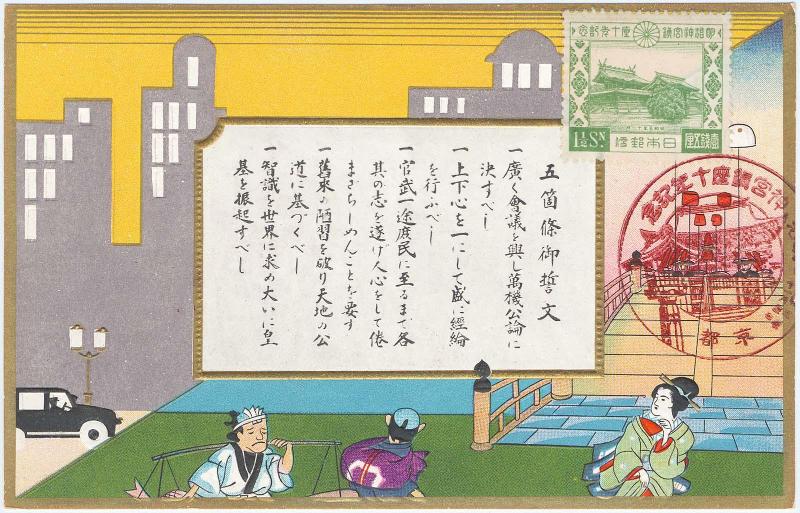 五箇條御誓文
一廣く會議を興し萬機公論に
決すべし
一上下心を一にして盛に經綸
を行ふべし
一官武一途庶民に至るまで各
其の志を遂げ人心をして倦
まざらしめんことを要す
一舊來の陋習を破り天地の公
道に基づくべし
一智識を世界に求め大いに皇
基を振起すべし
念記年十座鎮宮神治明
1½SN
便郵本日
壹錢五厘
神宮鎮座十年記念
京都